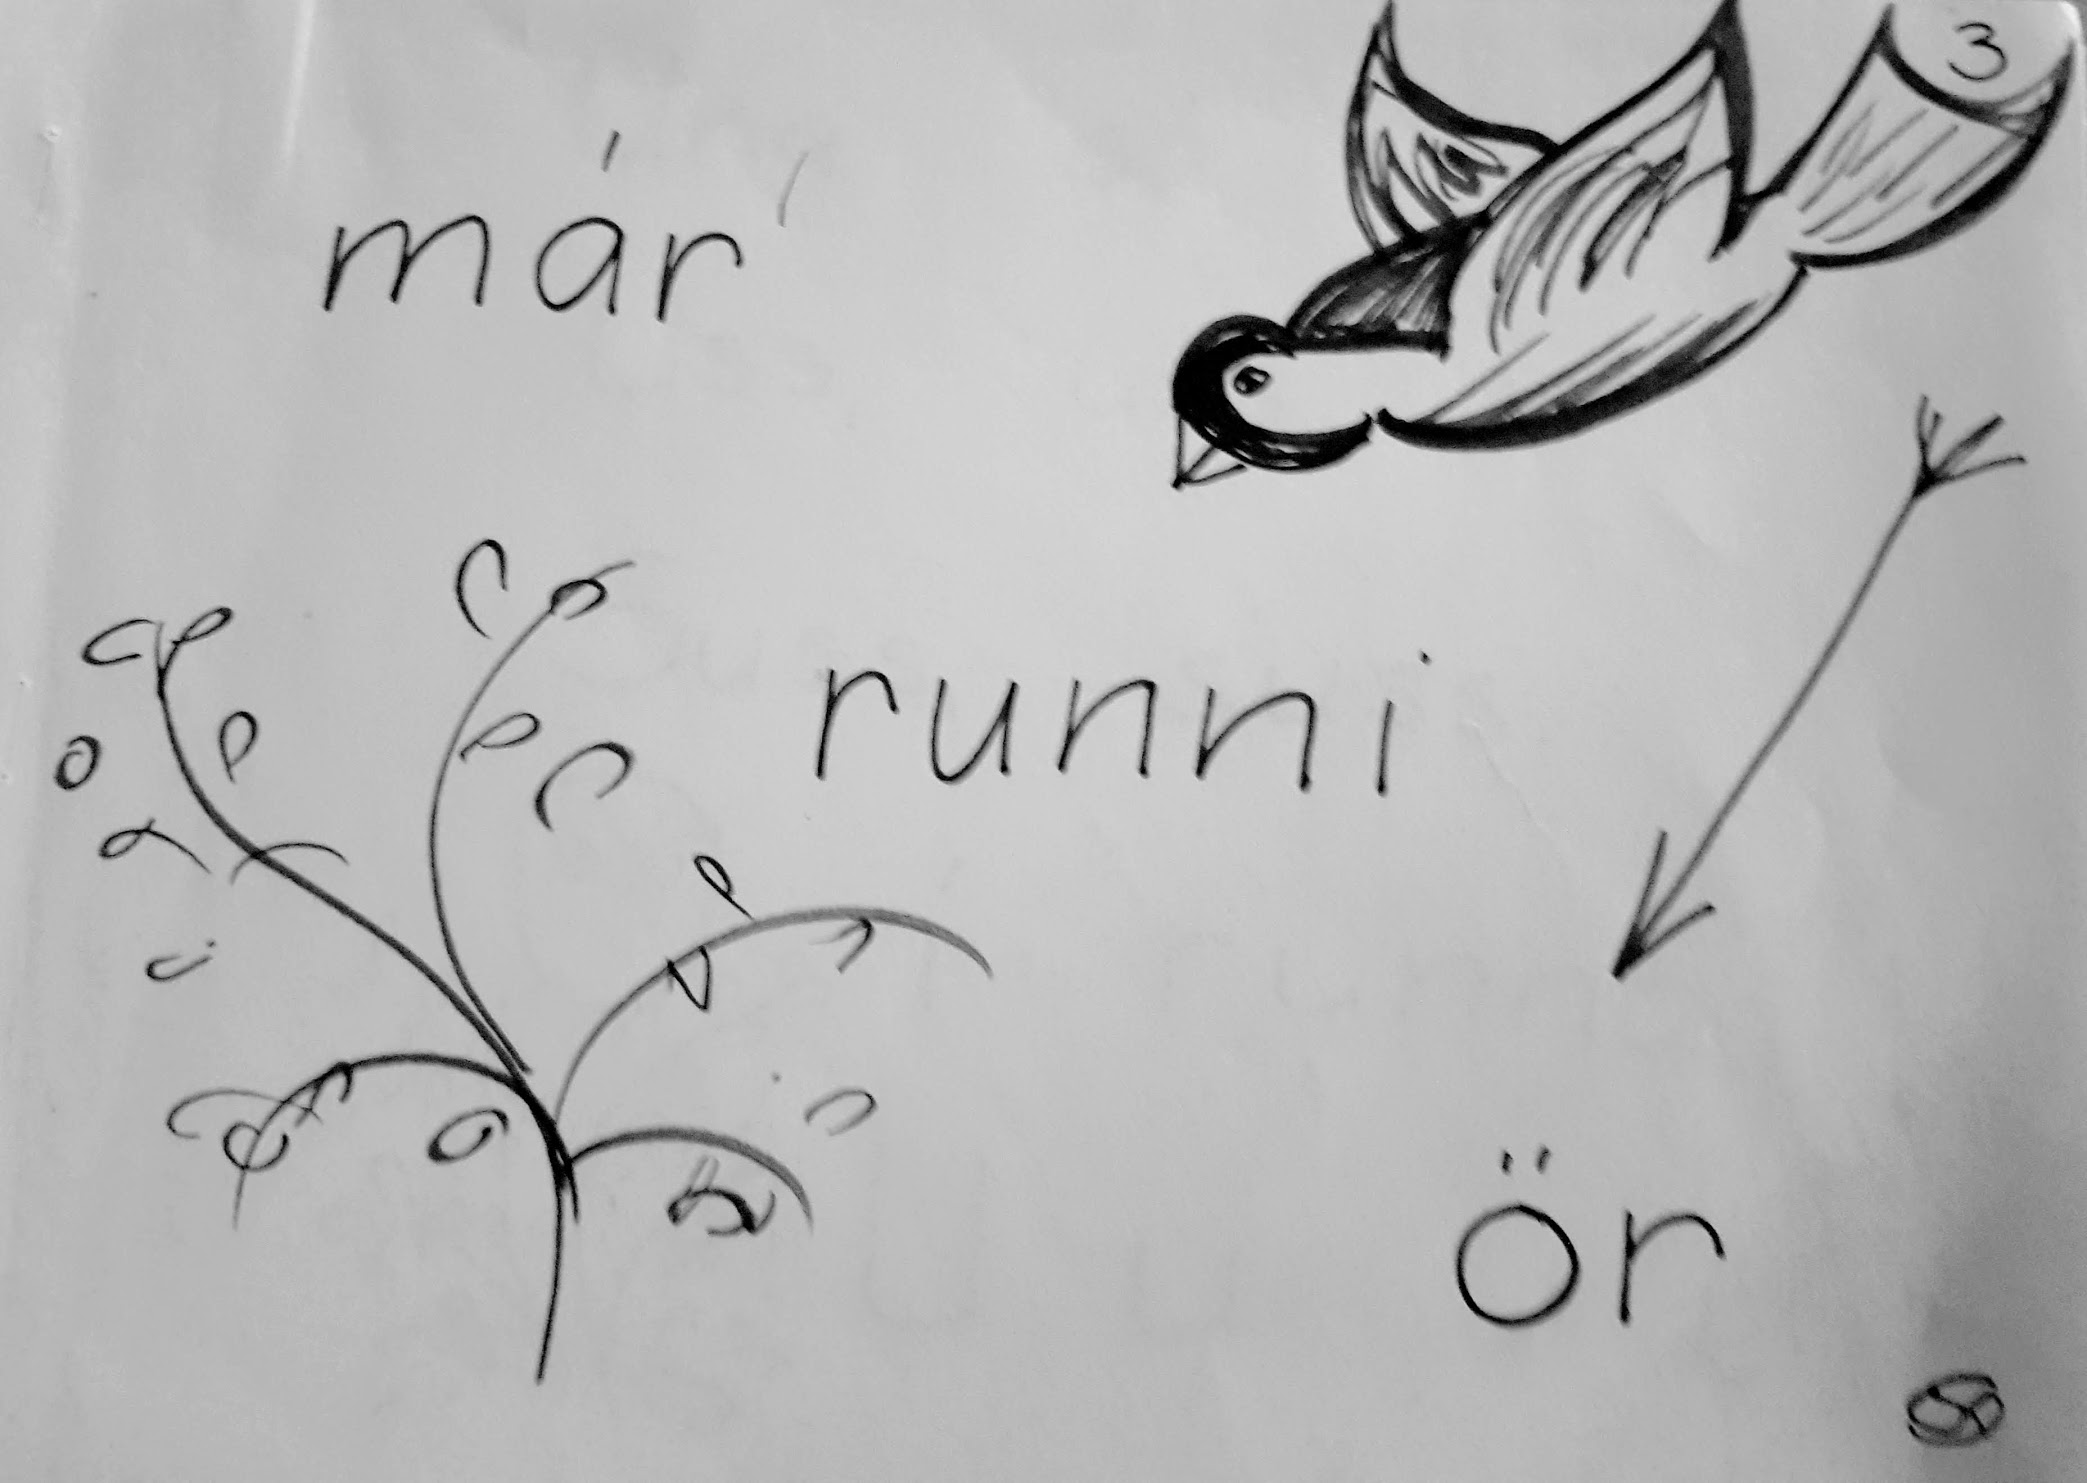 3
már
runni
ör